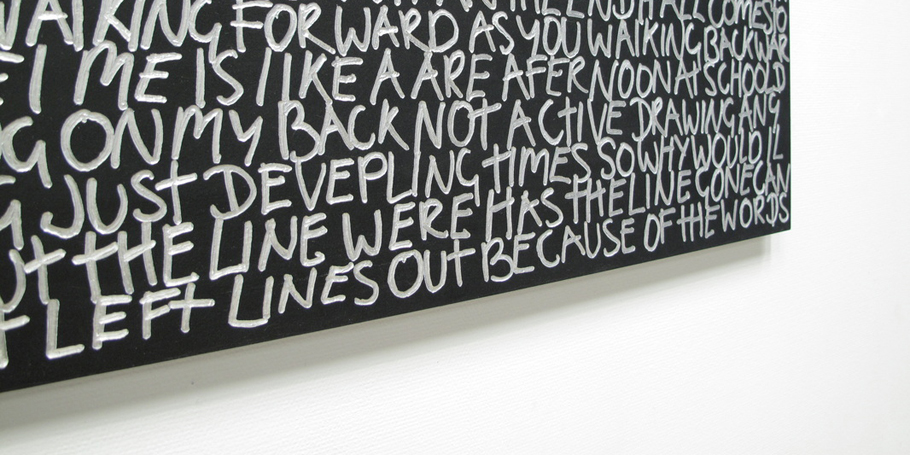 THE END IT ALL COMES TO
WALKING FORWARD AS YOU WALKING BACKWAR
ME IS LIKE A ARE AFERNOON AT SCHOOLD
G ON MY BACK NOT ACTIVE DRAWING ANG
JUST DEVEPLING TIMES SO WHY WOULD IL
UT THE LINE WERE HAS THE LINE GONE CAN
T LEFT LINES OUT BECAUSE OF THE WORDS